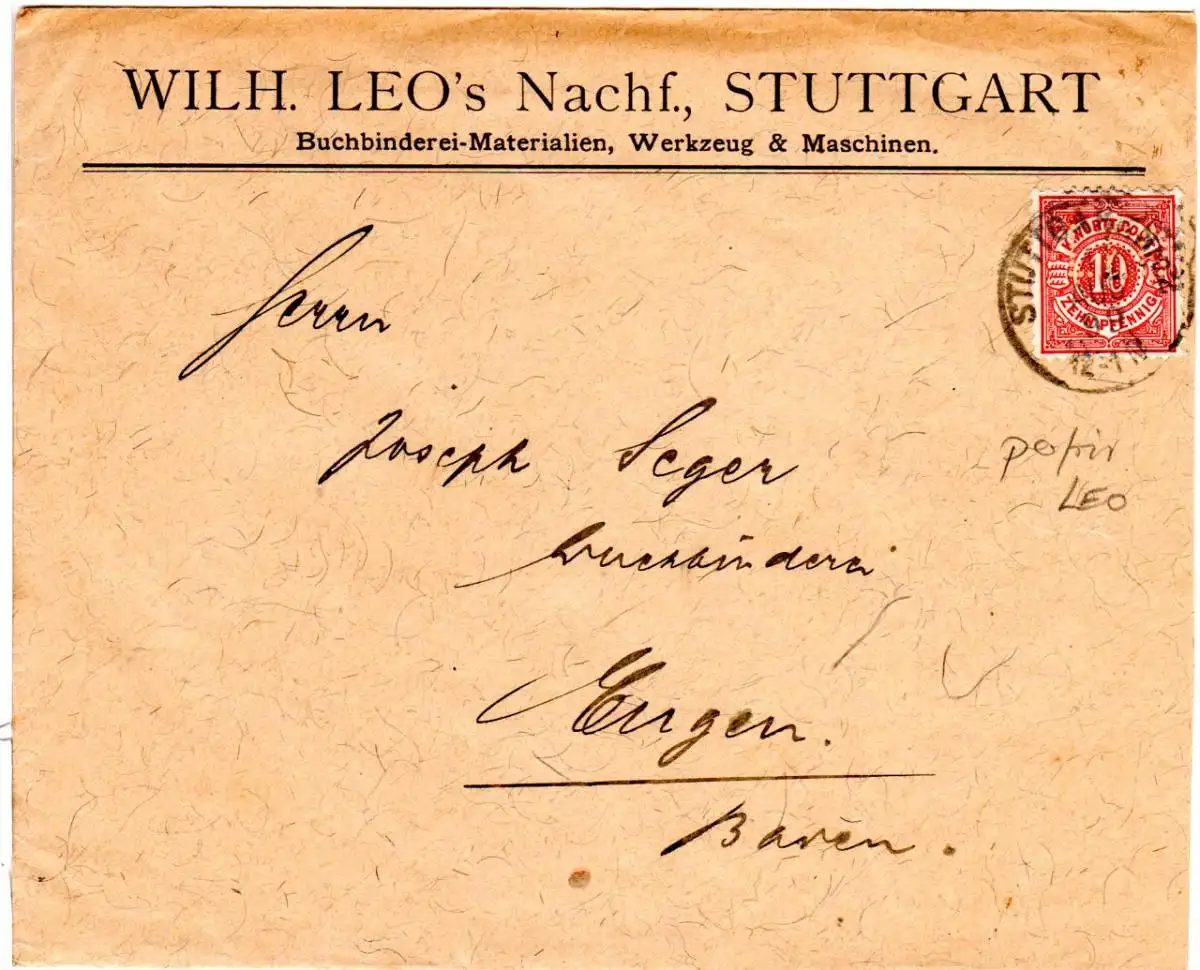 WILH. LEO's Nachf., STUTTGART
Buchbinderei-Materialien, Werkzeug & Maschinen.
STUTTGART
K. WÜRTT. POST
10
ZEHN PFENNIG
12-1 N
Herrn
Joseph Seger
LEO
Buchbinderei
Engen.
Baden.